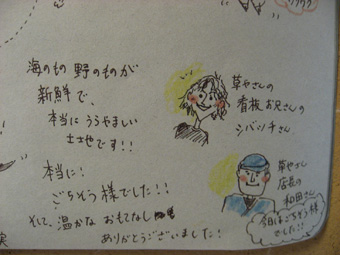 海のもの 野のものが
新鮮で、
本当に うらやましい
土地です!!
本当に!
ごちそう様でした!!
そして、温かな おもてなし
ありがとうございました!
草やさんの
看板 お兄さんの
シバッチさん
草やさん
店長の
和田さん
今日はごちそう様
でした!!
実